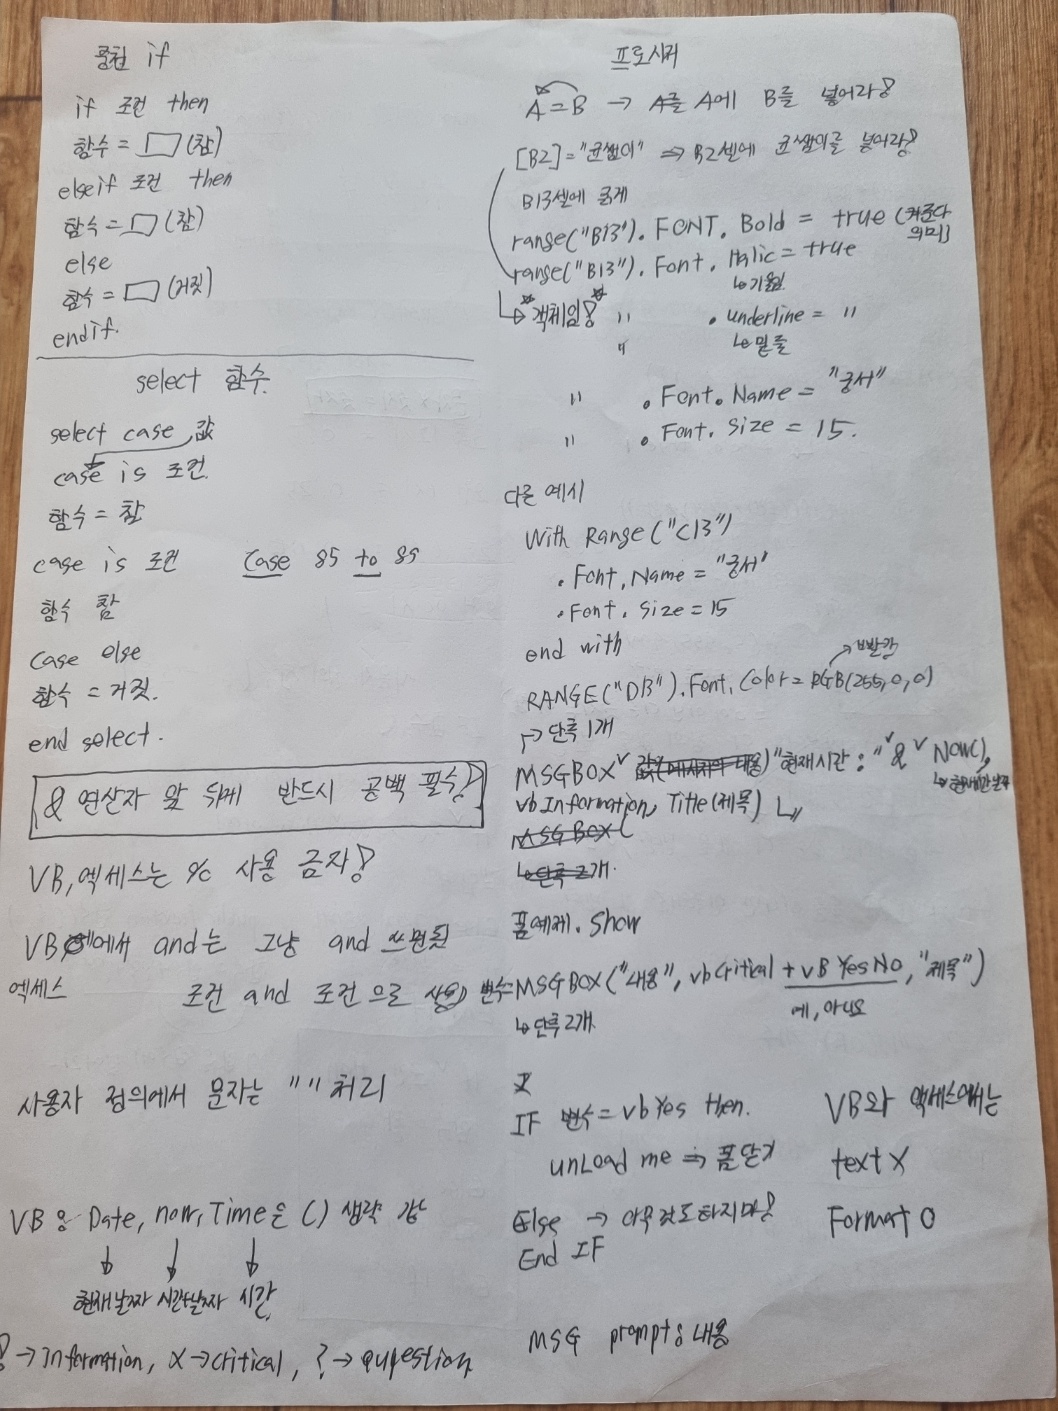 중첩 if
if 조건 then
함수 = (참)
elseif 조건 then
함수 = (참)
else
함수 = (거짓)
endif.
select 함수.
select case 값
case is 조건.
함수 = 참
case is 조건 Case 85 to 89
함수 참
Case else
함수 = 거짓.
end select.
& 연산자 앞 뒤에 반드시 공백 필수!
VB, 엑세스는 % 사용 금지!
VB 에서 and는 그냥 and 쓰면됨
엑세스 조건 and 조건 으로 사용
사용자 정의에서 문자는 " " 처리
VB 용 Date, now, Time은 () 생략 감
현재날짜 시간+날짜 시간
! → Information, X → critical, ? → question
프로시저
A = B → A를 A에 B를 넣어라!
[B2] = "균쌤이" ⇒ B2셀에 균쌤이를 넣어라!
B13셀에 굵게
range("B13"). FONT. Bold = true (켜준다 의미)
range("B13"). Font. Italic = true
↳ 기울임
↳ 객체임! " . underline = "
" ↳ 밑줄
" . Font. Name = "궁서"
" . Font. Size = 15.
다른 예시
With Range("C13")
. Font. Name = "궁서"
. Font. Size = 15
end with
→ 빨강
RANGE("D13"). Font. Color = RGB(255, 0, 0)
→ 단추 1개
MSGBOX 값(메시지의 내용) "현재시간 : " & Now(),
↳ 현재시간날짜
vbInformation, Title(제목)
MSG BOX (
↳ 단추 2개.
폼예제. Show
변수=MSGBOX("내용", vbCritical + vB YesNo, "제목")
예, 아니요
↳ 단추 2개.
IF 변수 = vbYes then.
unLoad me ⇒ 폼 닫기
Else → 아무것도하지마!
End IF
VB와 엑세스에서는
text X
Format O
MSG prompt : 내용